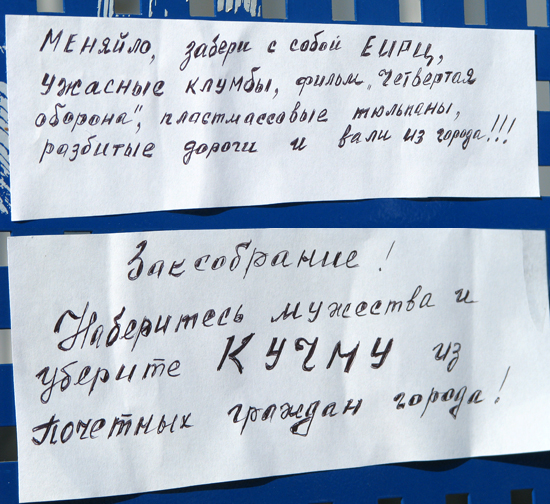 Меняйло, забери с собой ЕИРЦ,
ужасные клумбы, фильм „Четвертая
оборона", пластмассовые тюльпаны,
разбитые дороги и вали из города!!!
Заксобрание!
Наберитесь мужества и
уберите КУЧМУ из
почетных граждан города!